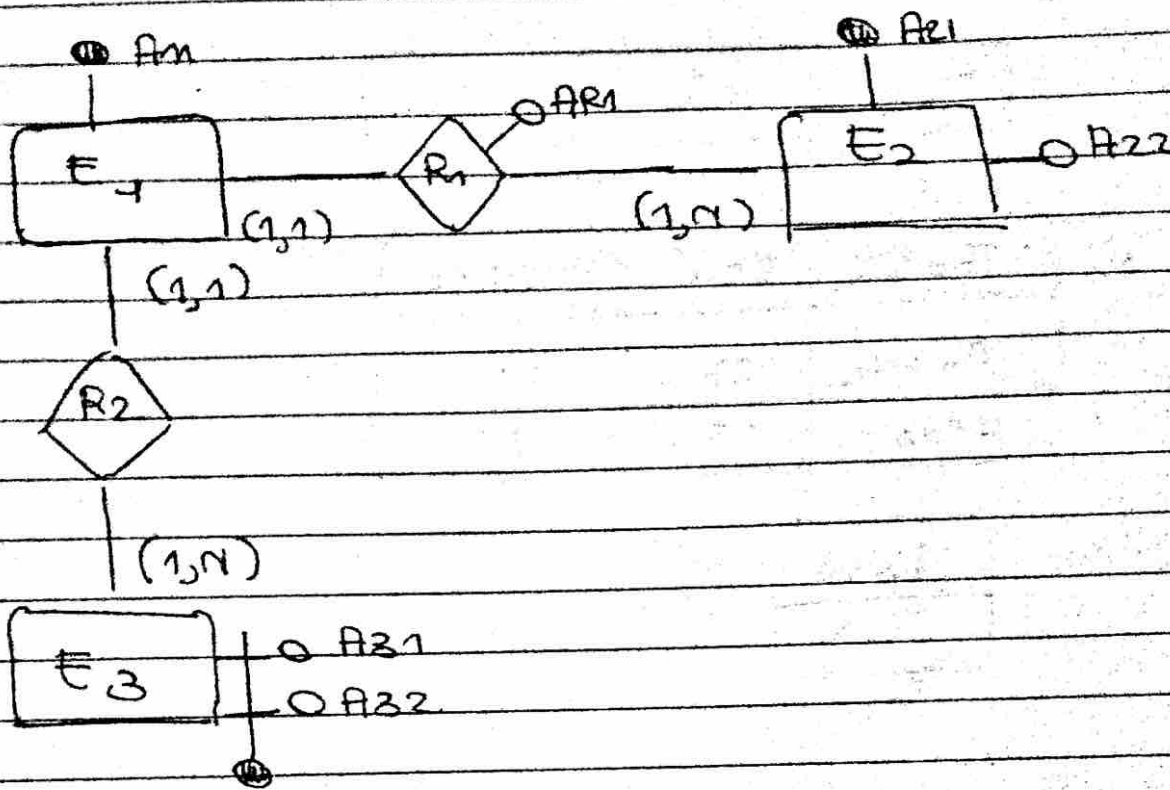 A11
A21
AR1
E1
R1
E2
A22
(1,1)
(1,N)
(1,1)
R2
(1,N)
E3
A31
A32